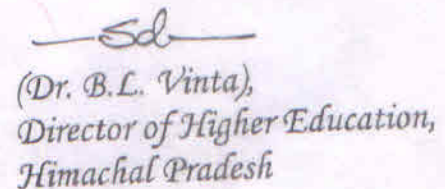 Sd
(Dr. B.L. Vinta),
Director of Higher Education,
Himachal Pradesh